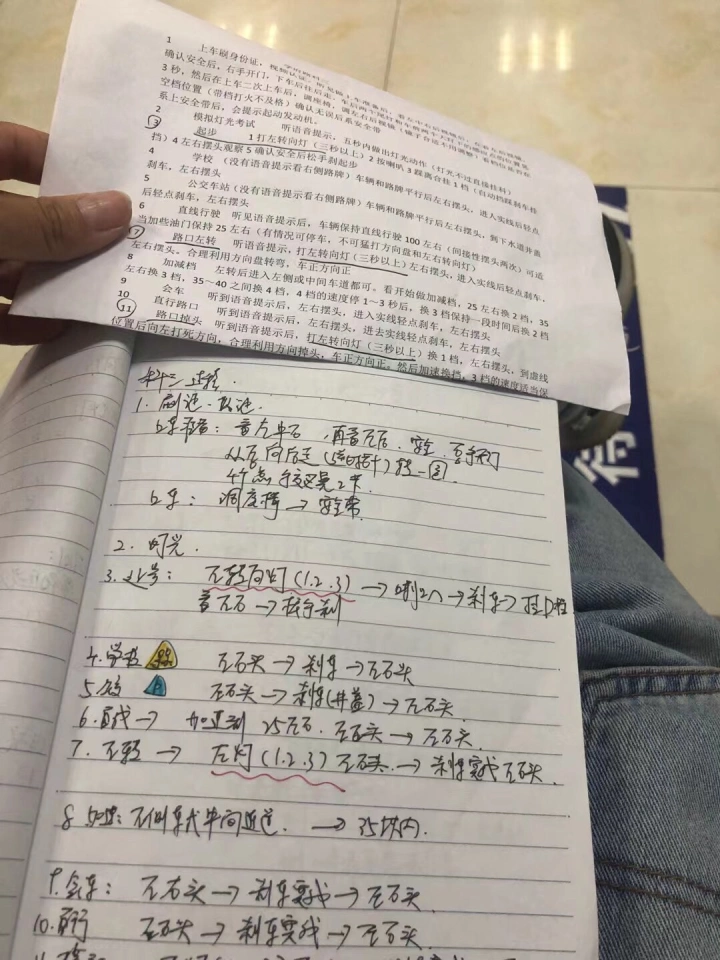 1 上车刷身份证，
确认安全后，右手开门，下车后往后走，
3 秒，然后在上车二次上车后，调座椅，
空档位置（带档打火不及格）确认无误后系安全带
系上安全带后，会提示起动发动机。
2 模拟灯光考试 听语音提示，五秒内做出灯光动作（灯光不过直接挂科）
3 起步 1 打左转向灯（三秒以上）2 按喇叭 3 踩离合挂 1 档（自动挡踩刹车挂
挡）4 左右摆头观察 5 确认安全后松手刹起步
4 学校（没有语音提示看右侧路牌）车辆和路牌平行后左右摆头，进入实线后轻点
刹车，左右摆头
5 公交车站（没有语音提示看右侧路牌）车辆和路牌平行后左右摆头，到下水道井盖
后轻点刹车，左右摆头
6 直线行驶 听见语音提示后，车辆保持直线行驶 100 左右（间接性摆头两次）可适
当加些油门保持 25 左右（有情况可停车，不可猛打方向盘和左右转向灯）
7 路口左转 听语音提示，打左转向灯（三秒以上）左右摆头，进入实线后轻点刹车，
左右摆头。合理利用方向盘转弯，车正方向正
8 加减档 左转后进入左侧或中间车道都可。看开始做加减档，25 左右换 2 档，35
左右换 3 档，35～40 之间换 4 档，4 档的速度停 1～3 秒后，换 3 档保持一段时间后换 2 档
9 会车 听到语音提示后，左右摆头，进入实线轻点刹车，左右摆头
10 直行路口 听到语音提示后，左右摆头，进去实线轻点刹车，左右摆头
11 路口掉头 听到语音提示后，打左转向灯（三秒以上）换 1 档，左右摆头，到虚线
位置后向左打死方向，合理利用方向掉头，车正方向正。然后加速换挡，3 档的速度适当保
科三 过程.
1. 刷证.
看左右
从左向后走 转一圈
上车：调座椅 → 安全带
2. 灯光.
3. 起步： 左转向灯（1.2.3）→ 喇叭 → 刹车 → 挂D档
看左右 → 松手刹
4. 学校 左右头 → 刹车 → 左右头
5. 左右头 → 刹车（井盖）→ 左右头.
6. 直线 → 加速到 25左右. 左右头 → 左右头.
7. 左转 → 左灯（1.2.3）左右头. → 刹车实线 左右头.
8 左侧车或中间车道. → 35以内.
9. 会车： 左右头 → 刹车实线 → 左右头.
10. 直行 左右头 → 刹车实线 → 左右头.